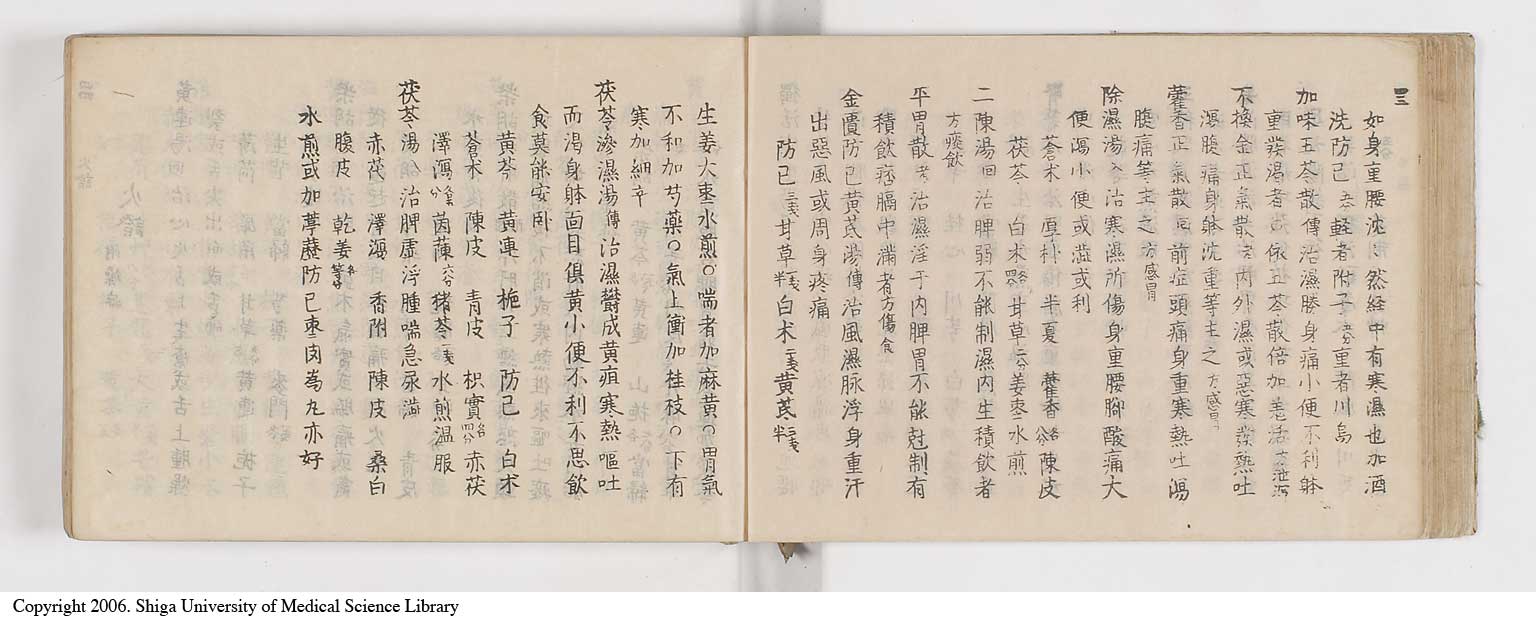 三
如身重腰沈々然経中有寒濕也加酒
洗防己五分軽者附子五分重者川烏
加味五苓散 傳治濕勝身痛小便不利躰
重發渴者 依五苓散倍加羌活
不換金正氣散 治内外濕或惡寒發熱吐
瀉腹痛身躰沈重等主之方感冒
藿香正氣散 前症頭痛身重寒熱吐瀉
腹痛等主之方感冒
除濕湯 治寒濕所傷身重腰脚酸痛大
便瀉小便或澁或利
蒼术 厚朴 半夏 藿香 陳皮
茯苓 白术 甘草 姜枣水煎
二陳湯 治脾弱不能制濕内生積飲者
方痰飲
平胃散 治濕淫于内脾胃不能尅制有
積飲痞膈中滿者方傷食
金匱防已黄芪湯 傳治風濕脉浮身重汗
出惡風或周身疼痛
防已三戔甘草一戔半白术二戔黄芪二戔半
生姜大枣水煎○喘者加麻黄○胃氣
不和加芍藥○氣上衝加桂枝○下有
寒加細辛
茯苓滲濕湯 傳治濕鬱成黄疸寒熱嘔吐
而渴身躰面目俱黄小便不利不思飲
食莫能安卧
黄芩 黄連 梔子 防己 白术
蒼术 陳皮 青皮 枳實各四分 赤茯
澤瀉 茵蔯六分 猪苓一戔 水煎温服
茯苓湯 治脾虚浮腫喘急尿澁
赤茯 澤瀉 香附 陳皮 桑白
腹皮 乾姜各等分
水煎或加葶藶防已枣肉為丸亦好
Copyright 2006. Shiga University of Medical Science Library